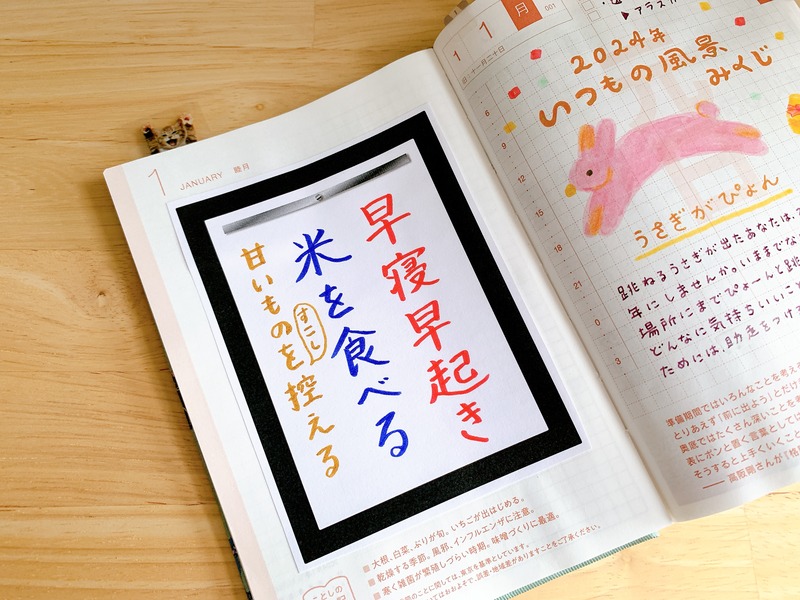 1 JANUARY 睦月
早寝早起き
米を食べる
甘いものを控える
すこし
大根、白菜、ぶりが旬。いちごが出はじめる。
乾燥する季節。風邪、インフルエンザに注意。
寒く雑菌が繁殖しづらい時期。味噌づくりに最適。
1 1 月
001
2024年
いつもの風景
みくじ
6
9
12
15
18
21
0
3
うさぎがぴょん
跳ねるうさぎが出たあなたは、
年にしませんか。いままでな
場所にまでぴょーんと跳
どんなに気持ちいいこと
ためには、助走をつけ
準備期間ではいろんなことを考え
とりあえず「前に出よう」とだけ
奥底ではたくさん深いことを考
表にポンと置く言葉として
そうすると上手くいくこと
高阪剛さんが『格